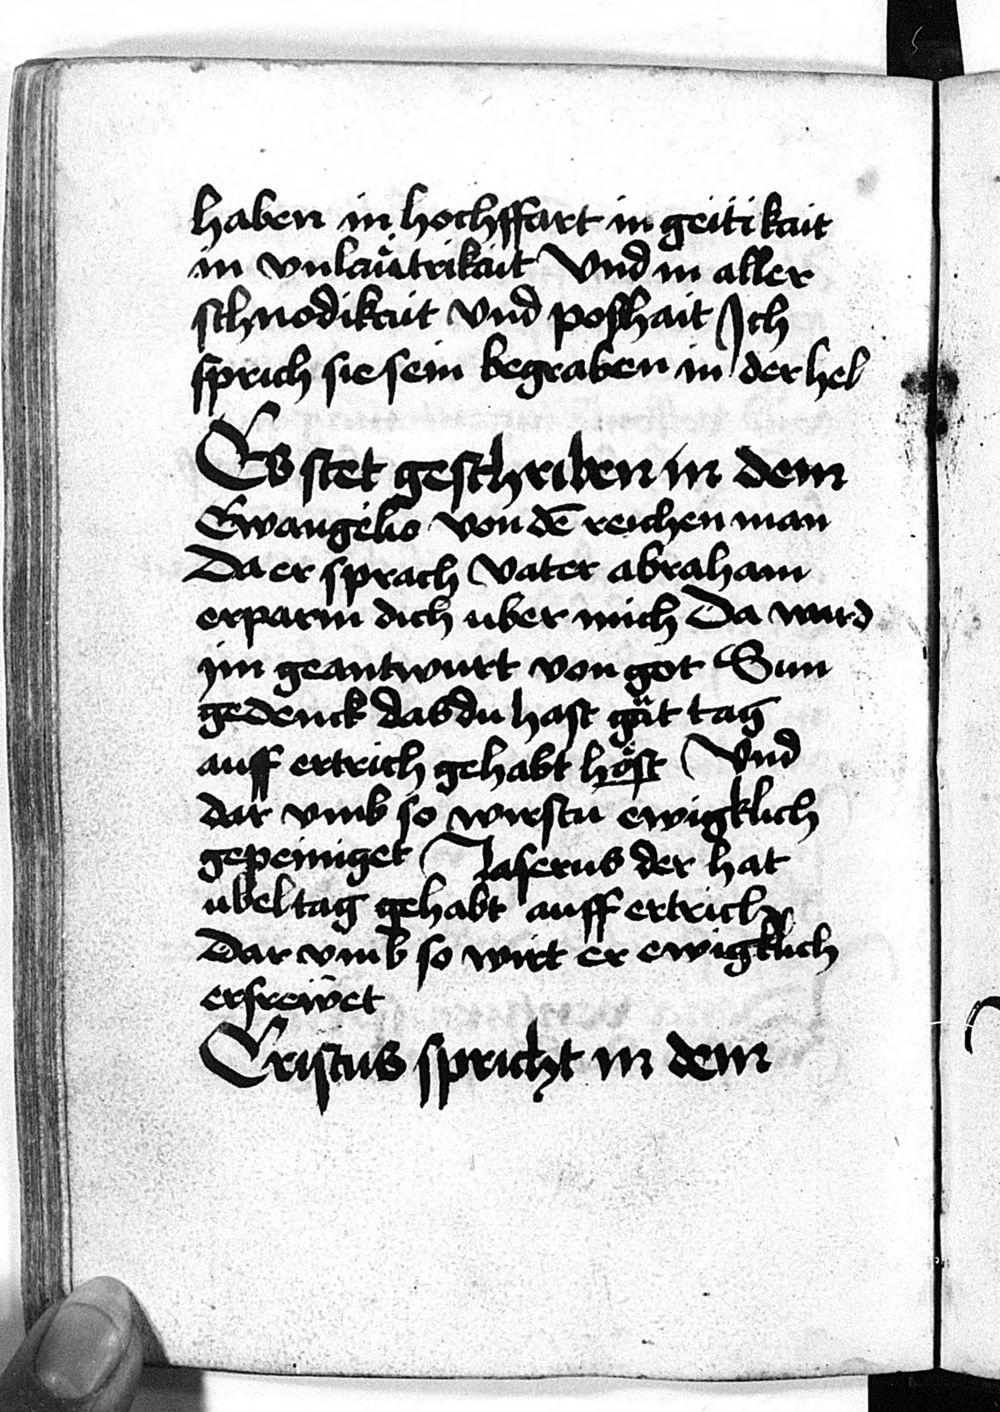 haben in hochffart in geitikait
in vnlaütrikait Vnd in aller
schnodikait vnd poszhait Ich
sprich sie sein begraben in der hel
Es stet geschriben in dem
Ewangelio von dē reichen man
Da er sprach Vater abraham
erparm dich uber mich Da ward
im geantwurt von got Sun
gedenck das du hast gůt tag
auff ertrich gehabt höst Vnd
dar vmb so wirstu ewigklich
gepeiniget Laserus der hat
ubel tag gehabt auff ertrich
Dar vmb so wirt er ewigklich
erfrewet
Cristus spricht in dem